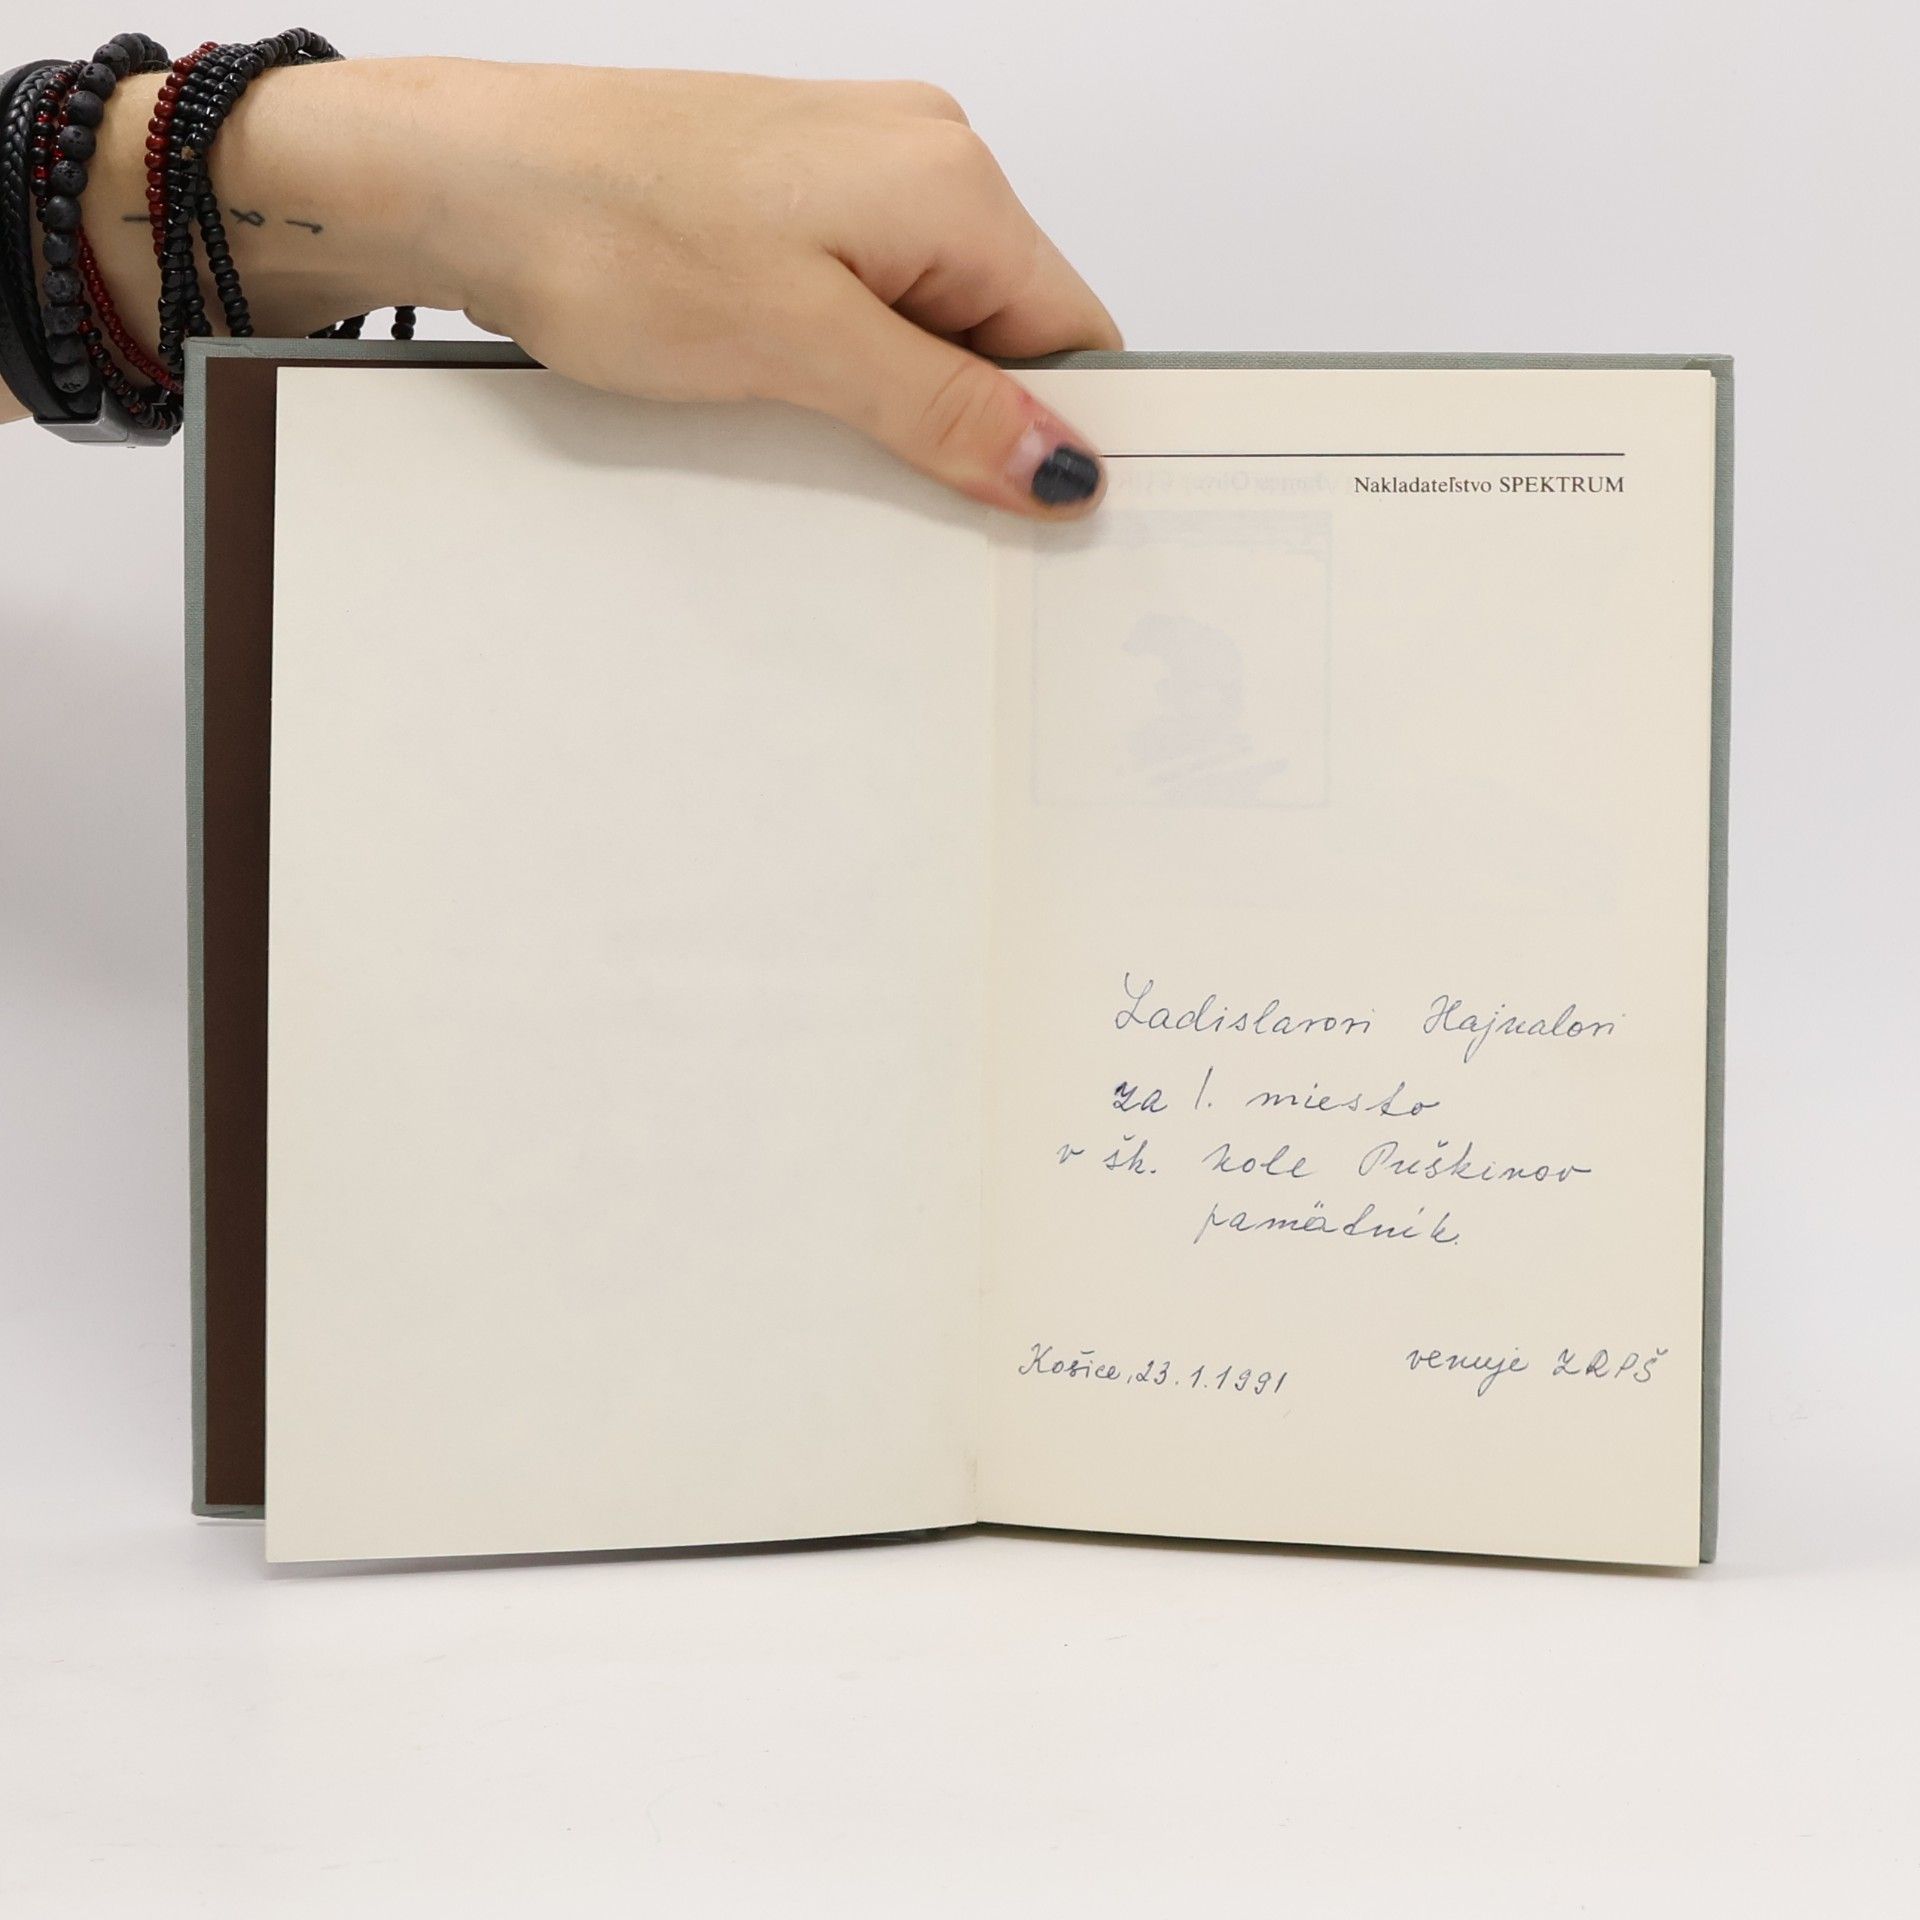 Nakladateľstvo SPEKTRUM
Ladislavovi Hajnalovi
za 1. miesto
v šk. kole Puškinov
pamätník.
Košice, 23.1.1991 venuje ZRPŠ